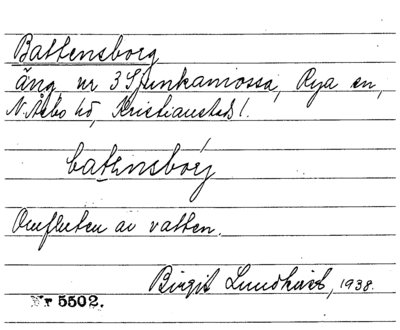 Battensborg
äng, nr 3 Sjunkamossa, Rya sn,
N. Åsbo hd, Kristianstads l.
batensbórj
Omfluten av vatten.
Birgit Lundkvist, 1938.
Nr 5502.